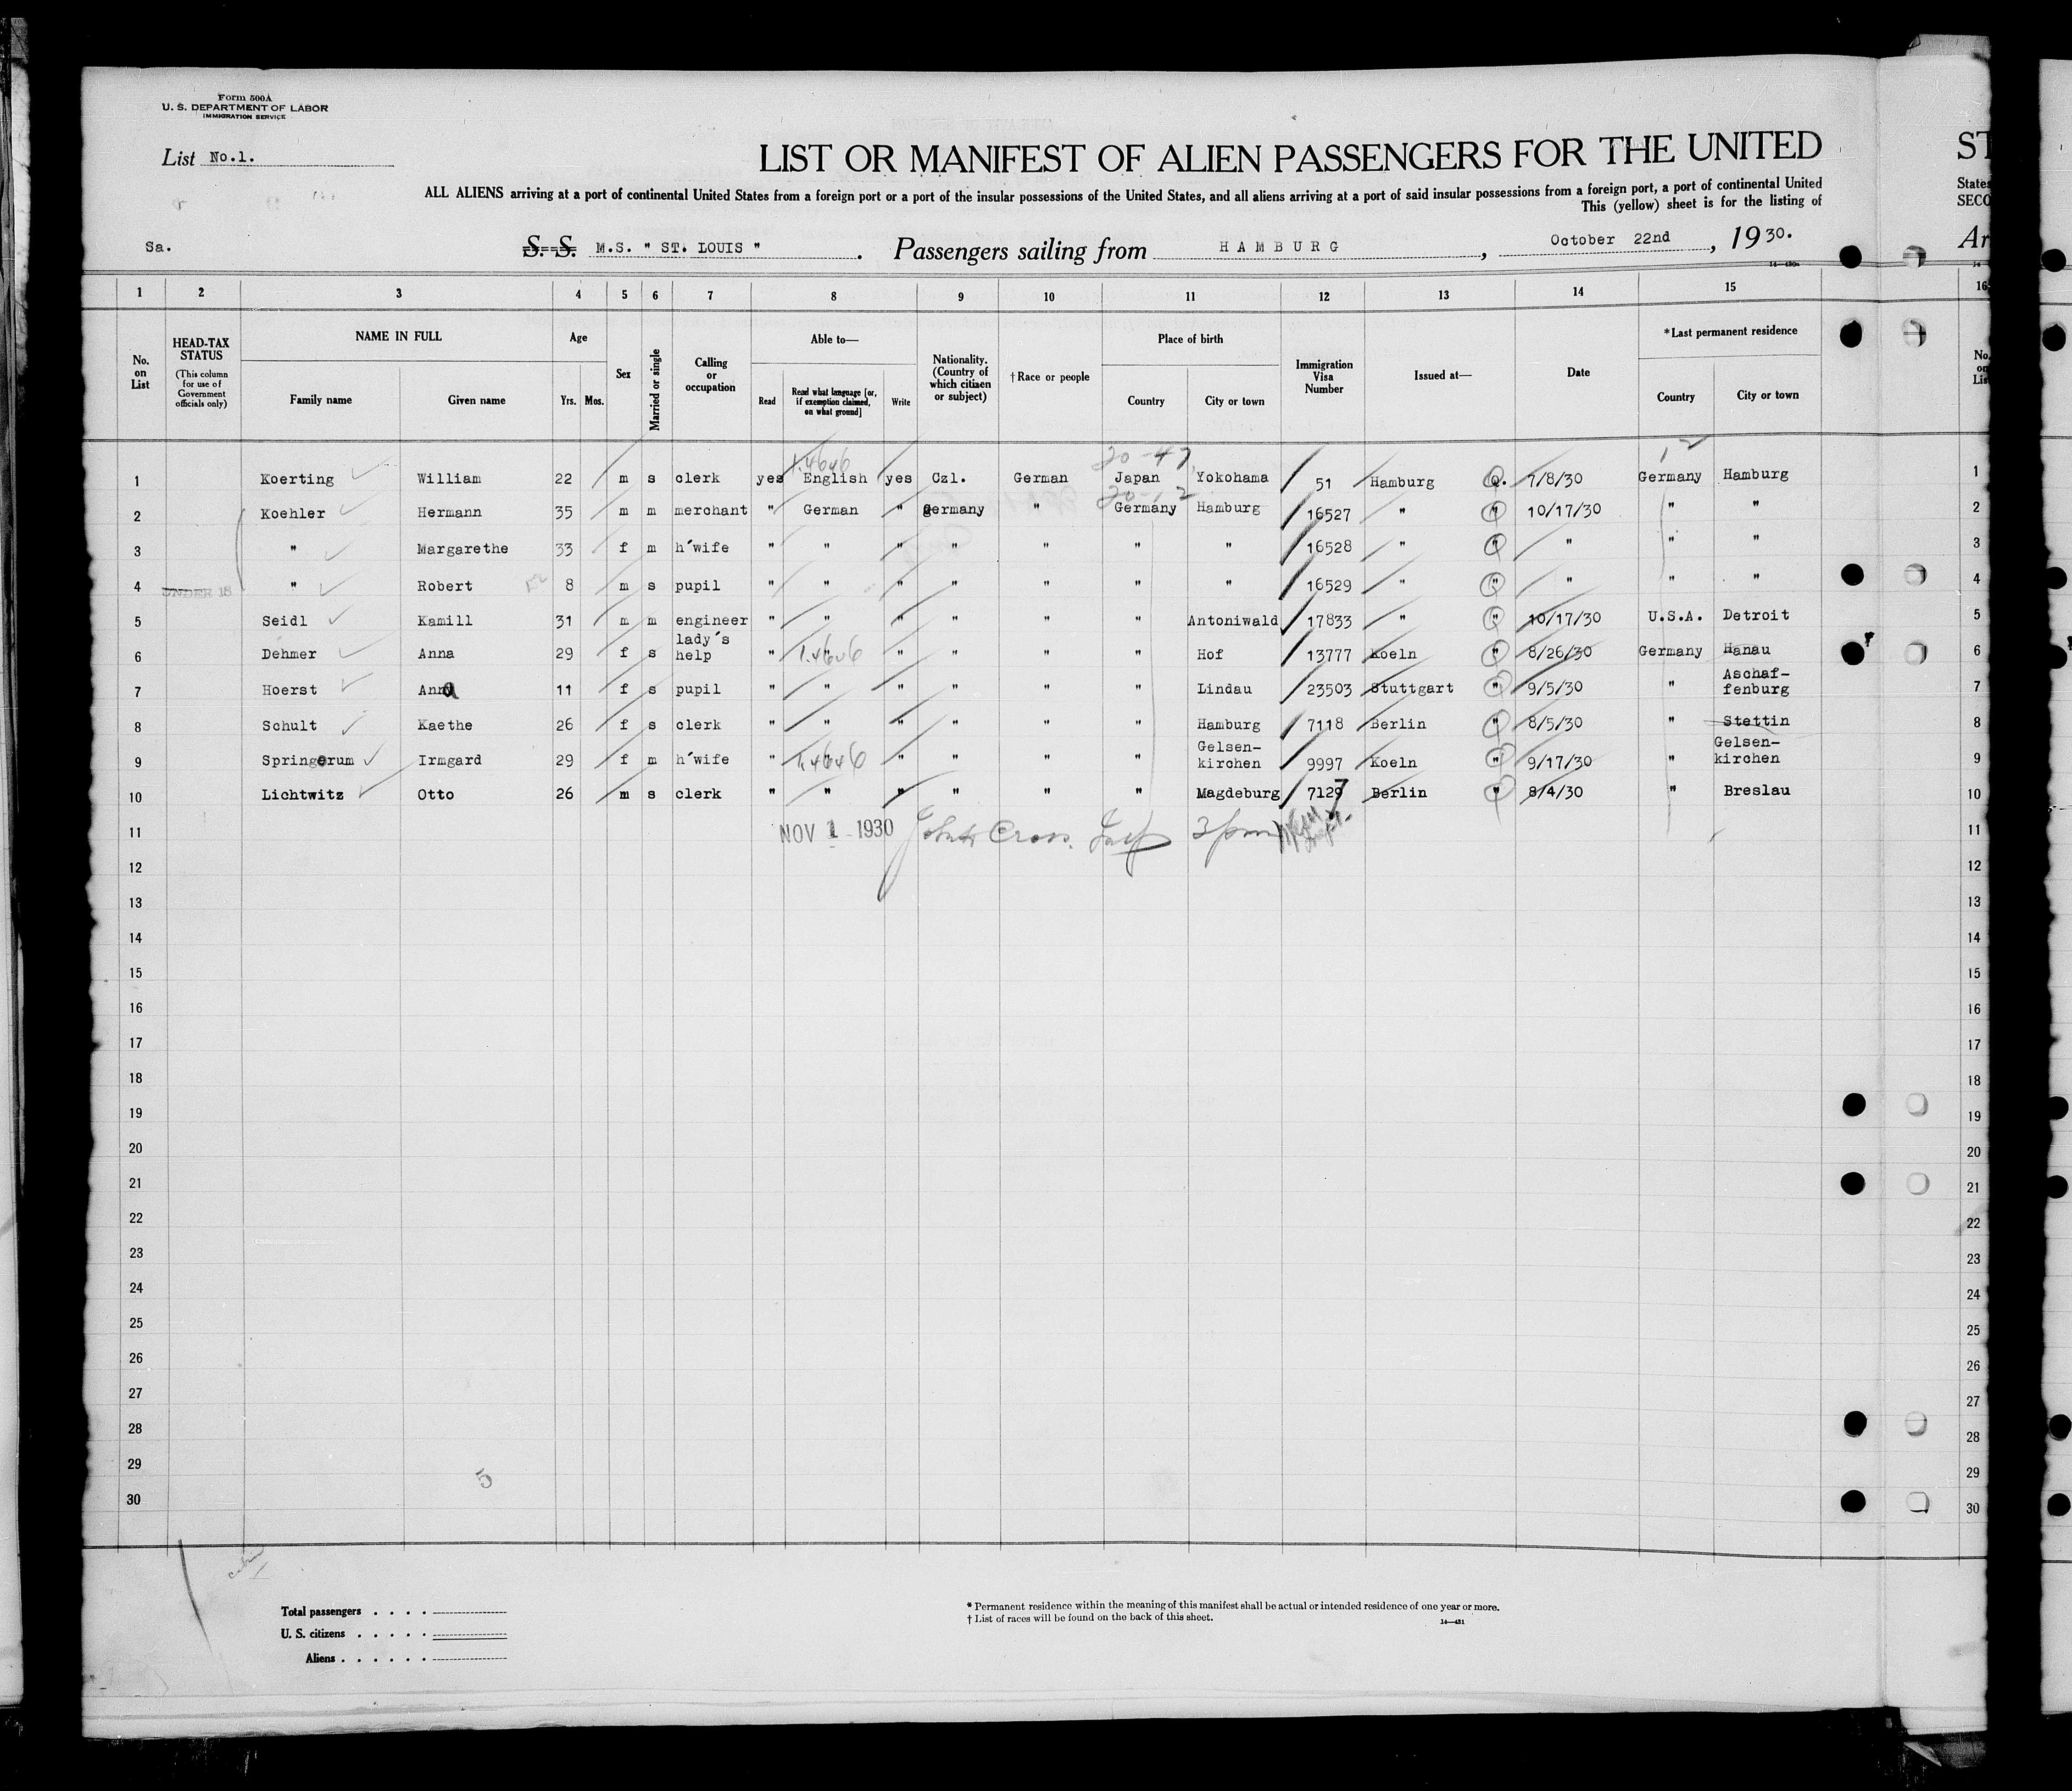 Form 500A
U. S. DEPARTMENT OF LABOR
IMMIGRATION SERVICE
List No.1.
LIST OR MANIFEST OF ALIEN PASSENGERS FOR THE UNITED
ALL ALIENS arriving at a port of continental United States from a foreign port or a port of the insular possessions of the United States, and all aliens arriving at a port of said insular possessions from a foreign port, a port of continental United
This (yellow) sheet is for the listing of
Sa. S. S. M.S. " ST. LOUIS " . Passengers sailing from HAMBURG , October 22nd , 1930.
ST
States
SECO
Ar
1 2 3 4 5 6 7 8 9 10 11 12 13 14 15 16
No. on List
HEAD-TAX STATUS (This column for use of Government officials only)
NAME IN FULL
Family name Given name
Age
Yrs. Mos.
Sex
Married or single
Calling or occupation
Able to—
Read Read what language [or, if exemption claimed, on what ground] Write
Nationality. (Country of which citizen or subject)
† Race or people
Place of birth
Country City or town
Immigration Visa Number
Issued at—
Date
* Last permanent residence
Country City or town
1.4646 20-47
1 Koerting William 22 m s clerk yes English yes Czl. German Japan Yokohama 51 Hamburg Q. 7/8/30 Germany Hamburg 1
20-12
2 Koehler Hermann 35 m m merchant " German " germany " Germany Hamburg 16527 " " 10/17/30 " " 2
3 " Margarethe 33 f m h'wife " " " " " " " 16528 " " " " " 3
4 UNDER 16 " Robert 8 m s pupil " " " " " " " 16529 " " " " " 4
5 Seidl Kamill 31 m m engineer " " " " " " Antoniwald 17833 " " 10/17/30 U.S.A. Detroit 5
6 Dehmer Anna 29 f s lady's help " 1.4646 " " " " " Hof 13777 Koeln " 8/26/30 Germany Hanau 6
7 Hoerst Anna 11 f s pupil " " " " " " Lindau 23503 Stuttgart " 9/5/30 " Aschaf-fenburg 7
8 Schult Kaethe 26 f s clerk " " " " " " Hamburg 7118 Berlin " 8/5/30 " Stettin 8
9 Springorum Irmgard 29 f m h'wife " 1.4646 " " " " " Gelsen-kirchen 9997 Koeln " 9/17/30 " Gelsen-kirchen 9
10 Lichtwitz Otto 26 m s clerk " " " " " " Magdeburg 7129 Berlin " 8/4/30 " Breslau 10
11 NOV 1 1930 Cross. Insp 3 pm 11
12 12
13 13
14 14
15 15
16 16
17 17
18 18
19 19
20 20
21 21
22 22
23 23
24 24
25 25
26 26
27 27
28 28
29 5 29
30 30
Total passengers . . . .
U. S. citizens . . . . .
Aliens . . . . . .
* Permanent residence within the meaning of this manifest shall be actual or intended residence of one year or more.
† List of races will be found on the back of this sheet.
14—431